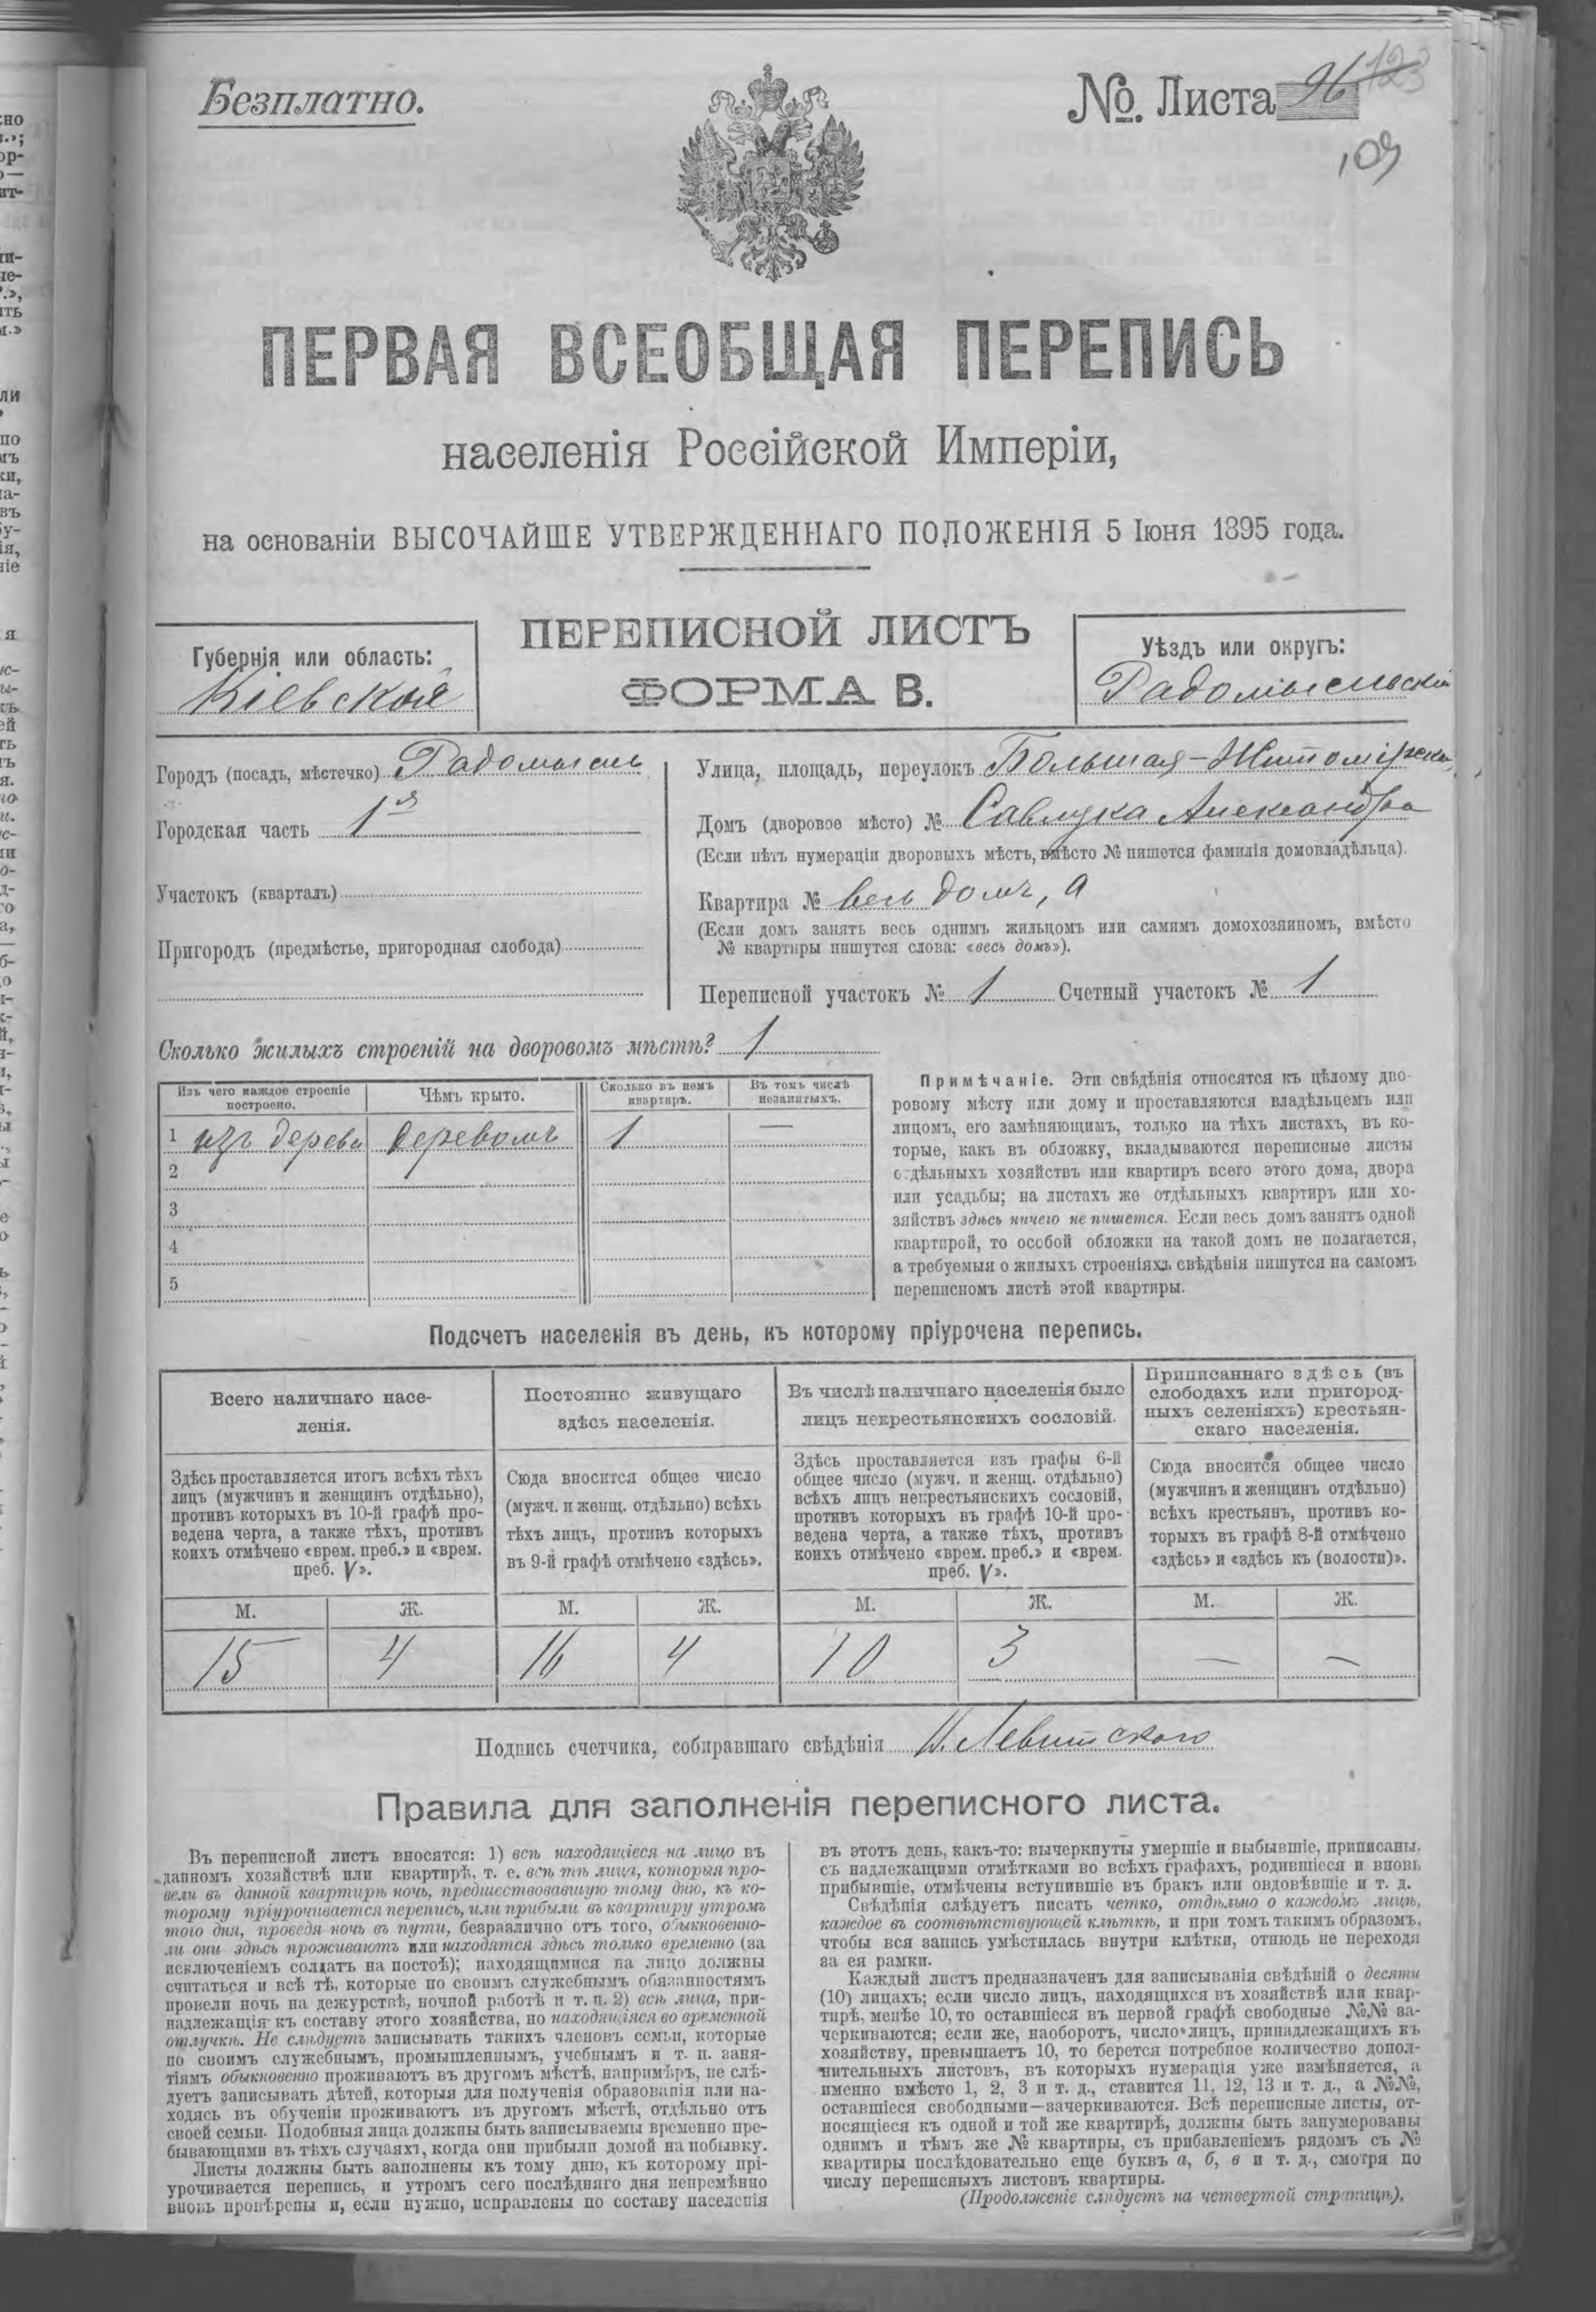 Безплатно.
№. Листа 96 123
109
ПЕРВАЯ ВСЕОБЩАЯ ПЕРЕПИСЬ
населенія Россійской Имперіи,
на основаніи ВЫСОЧАЙШЕ УТВЕРЖДЕННАГО ПОЛОЖЕНІЯ 5 Іюня 1895 года.
Губернія или область:
Кіевская
ПЕРЕПИСНОЙ ЛИСТЪ
ФОРМА В.
Уѣздъ или округъ:
Радомысльскій
Городъ (посадъ, мѣстечко) Радомысль
Городская часть 1я
Участокъ (кварталъ)
Пригородъ (предмѣстье, пригородная слобода)
Улица, площадь, переулокъ Большая-Житомірская
Домъ (дворовое мѣсто) № Савлука Александра
(Если нѣтъ нумераціи дворовыхъ мѣстъ, вмѣсто № пишется фамилія домовладѣльца).
Квартира № весь домъ, а
(Если домъ занятъ весь однимъ жильцомъ или самимъ домохозяиномъ, вмѣсто
№ квартиры пишутся слова: «весь домъ»).
Переписной участокъ № 1 Счетный участокъ № 1
Сколько жилыхъ строеній на дворовомъ мѣстѣ? 1
Изъ чего каждое строеніе построено.
Чѣмъ крыто.
Сколько въ немъ квартиръ.
Въ томъ числѣ незанятыхъ.
1 изъ дерева деревомъ 1 —
2
3
4
5
Примѣчаніе. Эти свѣдѣнія относятся къ цѣлому дво-
ровому мѣсту или дому и проставляются владѣльцемъ или
лицомъ, его замѣняющимъ, только на тѣхъ листахъ, въ ко-
торые, какъ въ обложку, вкладываются переписные листы
отдѣльныхъ хозяйствъ или квартиръ всего этого дома, двора
или усадьбы; на листахъ же отдѣльныхъ квартиръ или хо-
зяйствъ здѣсь ничего не пишется. Если весь домъ занятъ одной
квартирой, то особой обложки на такой домъ не полагается,
а требуемыя о жилыхъ строеніяхъ свѣдѣнія пишутся на самомъ
переписномъ листѣ этой квартиры.
Подсчетъ населенія въ день, къ которому пріурочена перепись.
Всего наличнаго насе-
ленія.
Постоянно живущаго
здѣсь населенія.
Въ числѣ наличнаго населенія было
лицъ некрестьянскихъ сословій.
Приписаннаго здѣсь (въ
слободахъ или пригород-
ныхъ селеніяхъ) крестьян-
скаго населенія.
Здѣсь проставляется итогъ всѣхъ тѣхъ
лицъ (мужчинъ и женщинъ отдѣльно),
противъ которыхъ въ 10-й графѣ про-
ведена черта, а также тѣхъ, противъ
коихъ отмѣчено «врем. преб.» и «врем.
преб. V».
Сюда вносится общее число
(мужч. и женщ. отдѣльно) всѣхъ
тѣхъ лицъ, противъ которыхъ
въ 9-й графѣ отмѣчено «здѣсь».
Здѣсь проставляется изъ графы 6-й
общее число (мужч. и женщ. отдѣльно)
всѣхъ лицъ некрестьянскихъ сословій,
противъ которыхъ въ графѣ 10-й про-
ведена черта, а также тѣхъ, противъ
коихъ отмѣчено «врем. преб.» и «врем.
преб. V».
Сюда вносится общее число
(мужчинъ и женщинъ отдѣльно)
всѣхъ крестьянъ, противъ ко-
торыхъ въ графѣ 8-й отмѣчено
«здѣсь» и «здѣсь къ (волости)».
М. Ж. М. Ж. М. Ж. М. Ж.
15 4 16 4 10 3 — —
Подпись счетчика, собиравшаго свѣдѣнія Левитского
Правила для заполненія переписного листа.
Въ переписной листъ вносятся: 1) всѣ находящіеся на лицо въ
данномъ хозяйствѣ или квартирѣ, т. е. всѣ тѣ лица, которыя про-
вели въ данной квартирѣ ночь, предшествовавшую тому дню, къ ко-
торому пріурочивается перепись, или прибыли въ квартиру утромъ
того дня, проведя ночь въ пути, безразлично отъ того, обыкновенно-
ли они здѣсь проживаютъ или находятся здѣсь только временно (за
исключеніемъ солдатъ на постоѣ); находящимися на лицо должны
считаться и всѣ тѣ, которые по своимъ служебнымъ обязанностямъ
провели ночь на дежурствѣ, ночной работѣ и т. п. 2) всѣ лица, при-
надлежащія къ составу этого хозяйства, но находящіяся во временной
отлучкѣ. Не слѣдуетъ записывать такихъ членовъ семьи, которые
по своимъ служебнымъ, промышленнымъ, учебнымъ и т. п. заня-
тіямъ обыкновенно проживаютъ въ другомъ мѣстѣ, напримѣръ, не слѣ-
дуетъ записывать дѣтей, которыя для полученія образованія или на-
ходясь въ обученіи проживаютъ въ другомъ мѣстѣ, отдѣльно отъ
своей семьи. Подобныя лица должны быть записываемы временно пре-
бывающими въ тѣхъ случаяхъ, когда они прибыли домой на побывку.
Листы должны быть заполнены къ тому дню, къ которому прі-
урочивается перепись, и утромъ сего послѣдняго дня непремѣнно
вновь провѣрены и, если нужно, исправлены по составу населенія
въ этотъ день, какъ-то: вычеркнуты умершіе и выбывшіе, приписаны,
съ надлежащими отмѣтками во всѣхъ графахъ, родившіеся и вновь
прибывшіе, отмѣчены вступившіе въ бракъ или овдовѣвшіе и т. д.
Свѣдѣнія слѣдуетъ писать четко, отдѣльно о каждомъ лицѣ,
каждое въ соотвѣтствующей клѣткѣ, и при томъ такимъ образомъ,
чтобы вся запись умѣстилась внутри клѣтки, отнюдь не переходя
за ея рамки.
Каждый листъ предназначенъ для записыванія свѣдѣній о десяти
(10) лицахъ; если число лицъ, находящихся въ хозяйствѣ или квар-
тирѣ, менѣе 10, то оставшіеся въ первой графѣ свободные №№ за-
черкиваются; если же, наоборотъ, число лицъ, принадлежащихъ къ
хозяйству, превышаетъ 10, то берется потребное количество допол-
нительныхъ листовъ, въ которыхъ нумерація уже измѣняется, а
именно вмѣсто 1, 2, 3 и т. д., ставится 11, 12, 13 и т. д., а №№,
оставшіеся свободными—зачеркиваются. Всѣ переписные листы, от-
носящіеся къ одной и той же квартирѣ, должны быть занумерованы
однимъ и тѣмъ же № квартиры, съ прибавленіемъ рядомъ съ №
квартиры послѣдовательно еще буквъ а, б, в и т. д., смотря по
числу переписныхъ листовъ квартиры.
(Продолженіе слѣдуетъ на четвертой страницѣ).